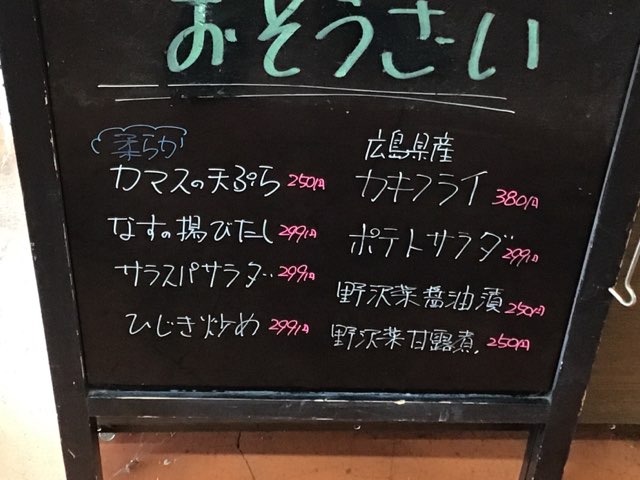 おそうさい
柔らか
カマスの天ぷら 250円
なすの揚びたし 299円
サラスパサラダ 299円
ひじき炒め 299円
広島県産
カキフライ 380円
ポテトサラダ 299円
野沢菜醤油漬 250円
野沢菜甘露煮 250円